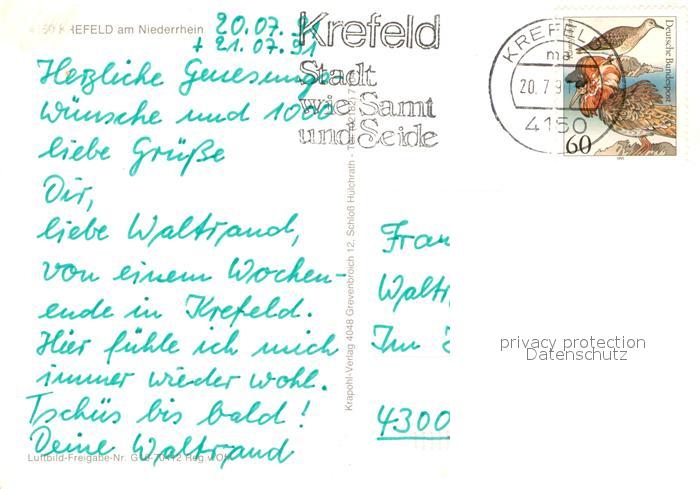 KREFELD am Niederrhein
20.07.91
+ 21.07.91
Herzliche Genesungs
Wünsche und 1000
liebe Grüße
Dir,
liebe Waltraud,
von einem Wochen-
ende in Krefeld.
Hier fühle ich mich
immer wieder wohl.
Tschüs bis bald!
Deine Waltraud
Luftbild-Freigabe-Nr.
Krapohl-Verlag 4048 Grevenbroich 12, Schloß Hülchrath
Krefeld
Stadt
wie Samt
und Seide
KREFELD
ma
20.7.91
4150
Deutsche Bundespost
60
Frau
Waltr
Im
4300
privacy protection
Datenschutz